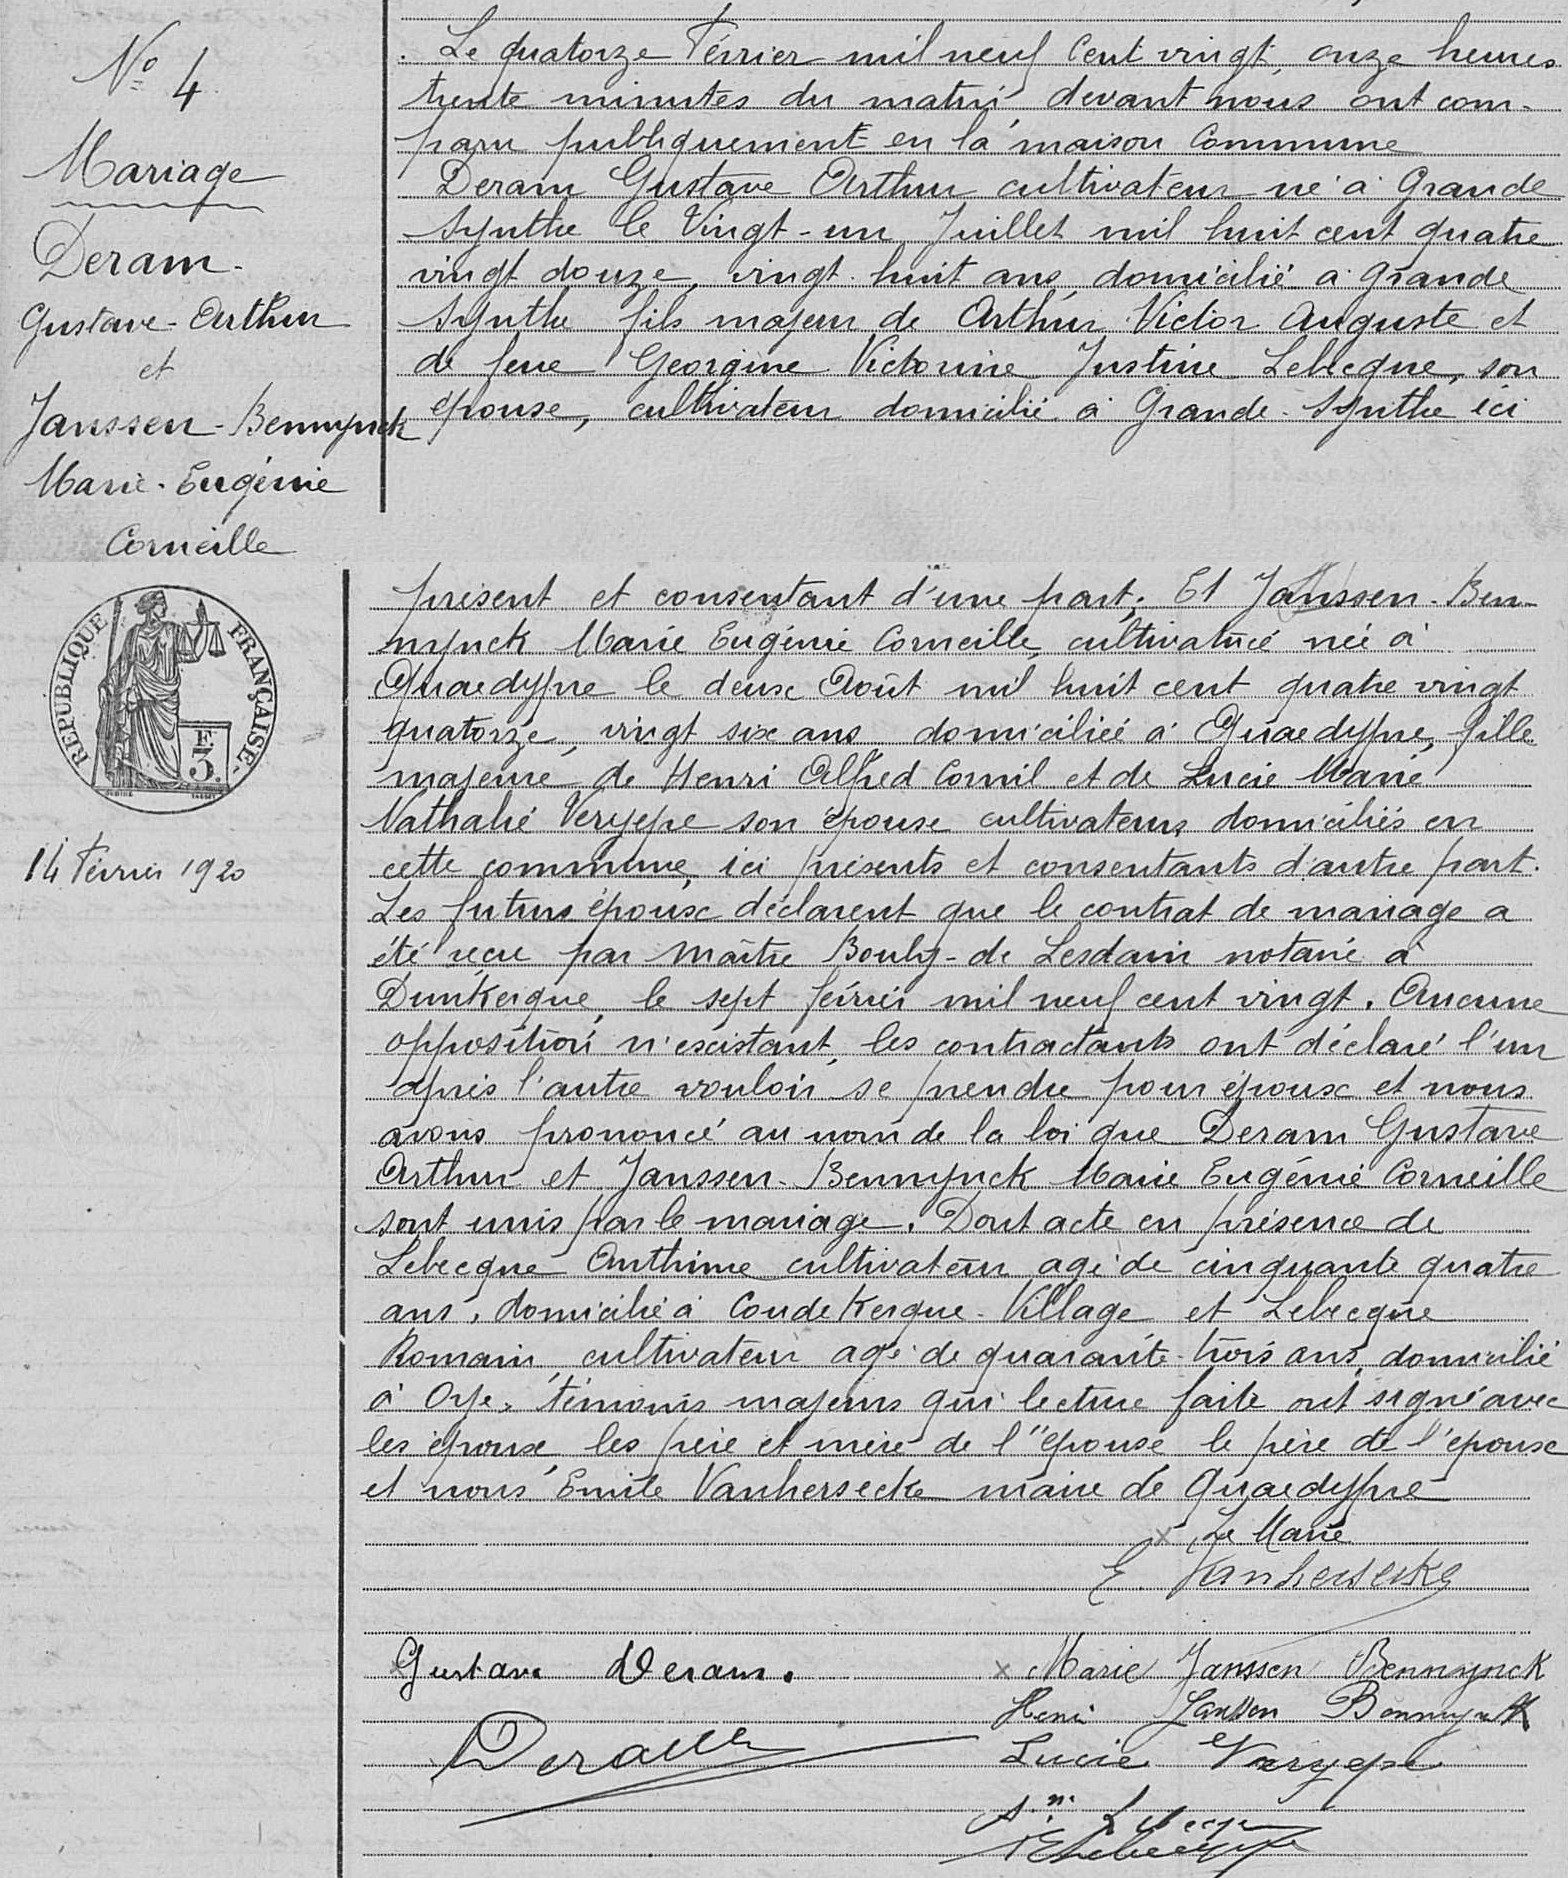 Nº 4
Mariage
Deram
Gustave-Arthur
et
Janssen-Bennynck
Marie-Eugénie
Corneille
. Le quatorze Février mil neuf cent vingt, onze heures
trente minutes du matin, devant nous ont com-
paru publiquement en la maison commune
Deram Gustave Arthur cultivateur né à Grande
Synthe le Vingt-un Juillet mil huit cent quatre
vingt douze, vingt huit ans, domicilié à Grande
Synthe fils majeur de Arthur Victor Auguste et
de feue Georgine Victorine Justine Lebecque, son
épouse, cultivateur domicilié à Grande-Synthe ici
REPUBLIQUE FRANÇAISE
F.
3.
14 Février 1920
présent et consentant d'une part; Et Janssen-Ben-
nynck Marie Eugénie Corneille, cultivatrice née à
Quaedypre le deux Août mil huit cent quatre vingt
quatorze, vingt six ans, domiciliée à Quaedypre, fille
majeure de Henri Alfred Cornil et de Lucie Marie
Nathalie Veryepe son épouse cultivateurs domiciliés en
cette commune, ici présents et consentants d'autre part.
Les futurs époux déclarent que le contrat de mariage a
été reçu par Maître Bouly-de Lesdain notaire à
Dunkerque, le sept février mil neuf cent vingt. Aucune
opposition n'existant, les contractants ont déclaré l'un
après l'autre vouloir se prendre pour époux et nous
avons prononcé au nom de la loi que Deram Gustave
Arthur et Janssen-Bennynck Marie Eugénie Corneille
sont unis par le mariage. Dont acte en présence de
Lebecque Anthime cultivateur agé de cinquante quatre
ans, domicilié à Coudekerque-Village et Lebecque
Romain, cultivateur agé de quarante-trois ans, domicilié
à Oye, témoins majeurs qui lecture faite ont signé avec
les époux, les père et mère de l'épouse le père de l'épouse
et nous Emile Vanhersecke maire de Quaedypre
x Le Maire
E. Vanhersecke
x Gustave Deram.
x Marie Janssen Bennynck
Henri Janssen Bennynck
Deram
Lucie Veryepe
Lebecque
Lebecque